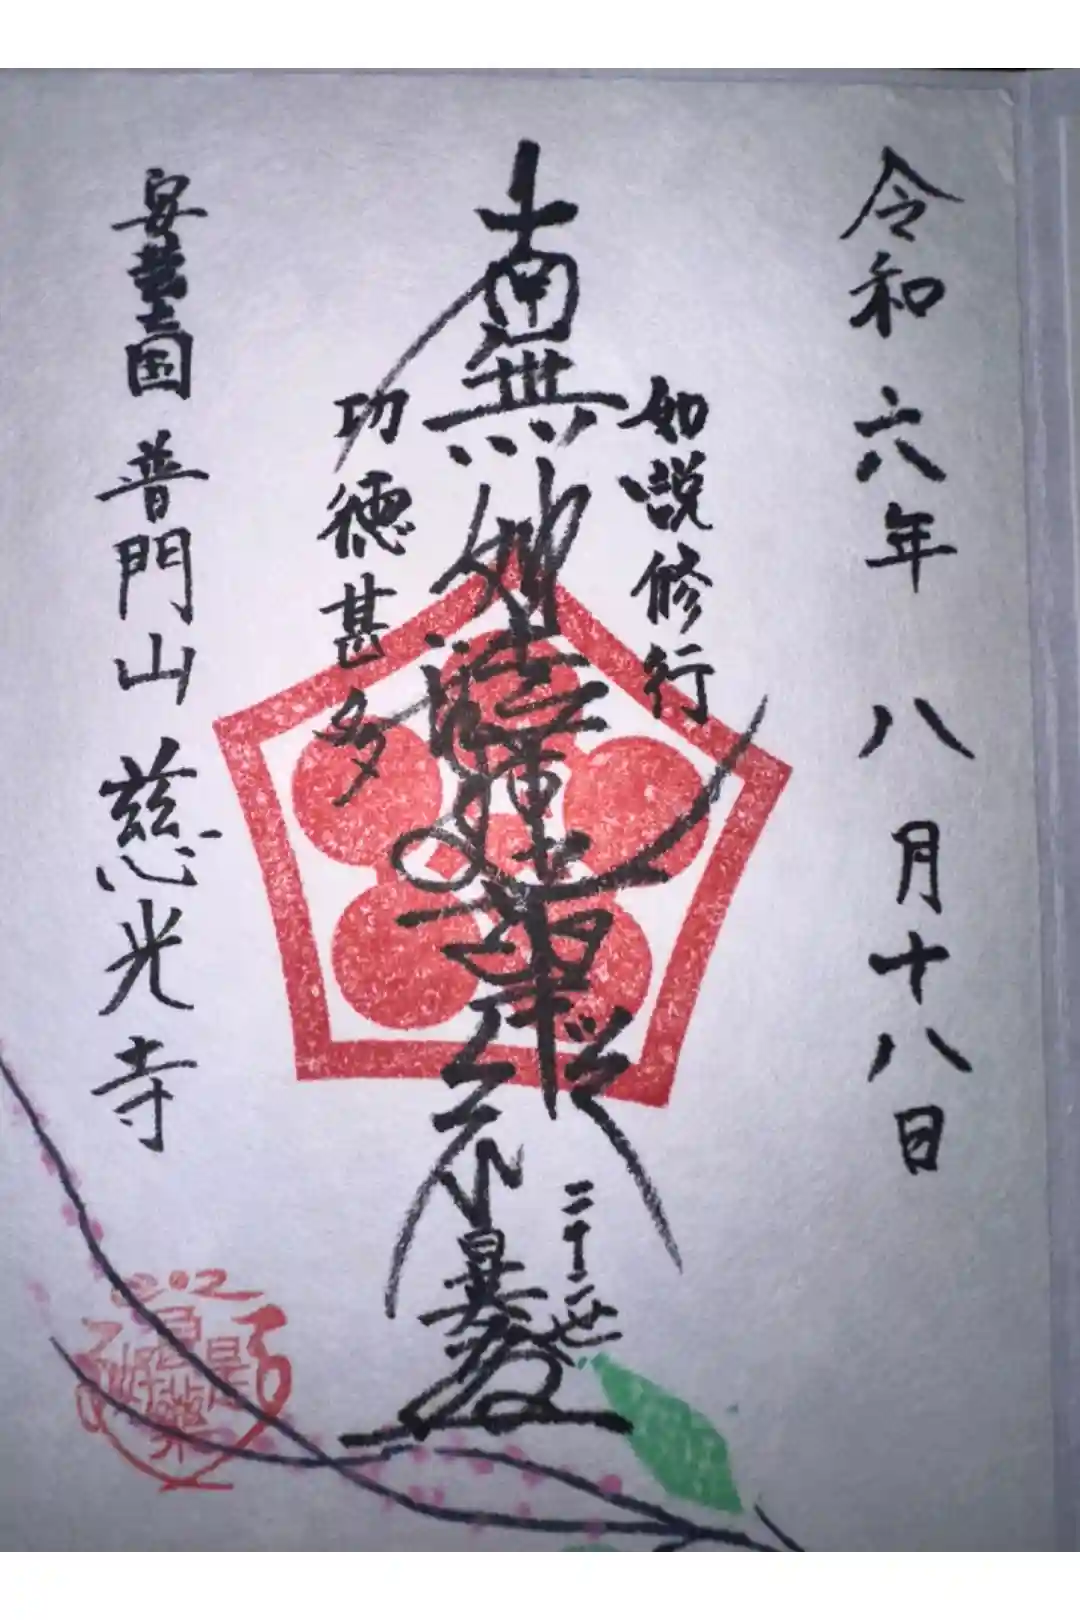 令和六年八月十八日
如説修行
南無妙法蓮華経
功徳甚多
二十二世
安藝国 普門山 慈光寺